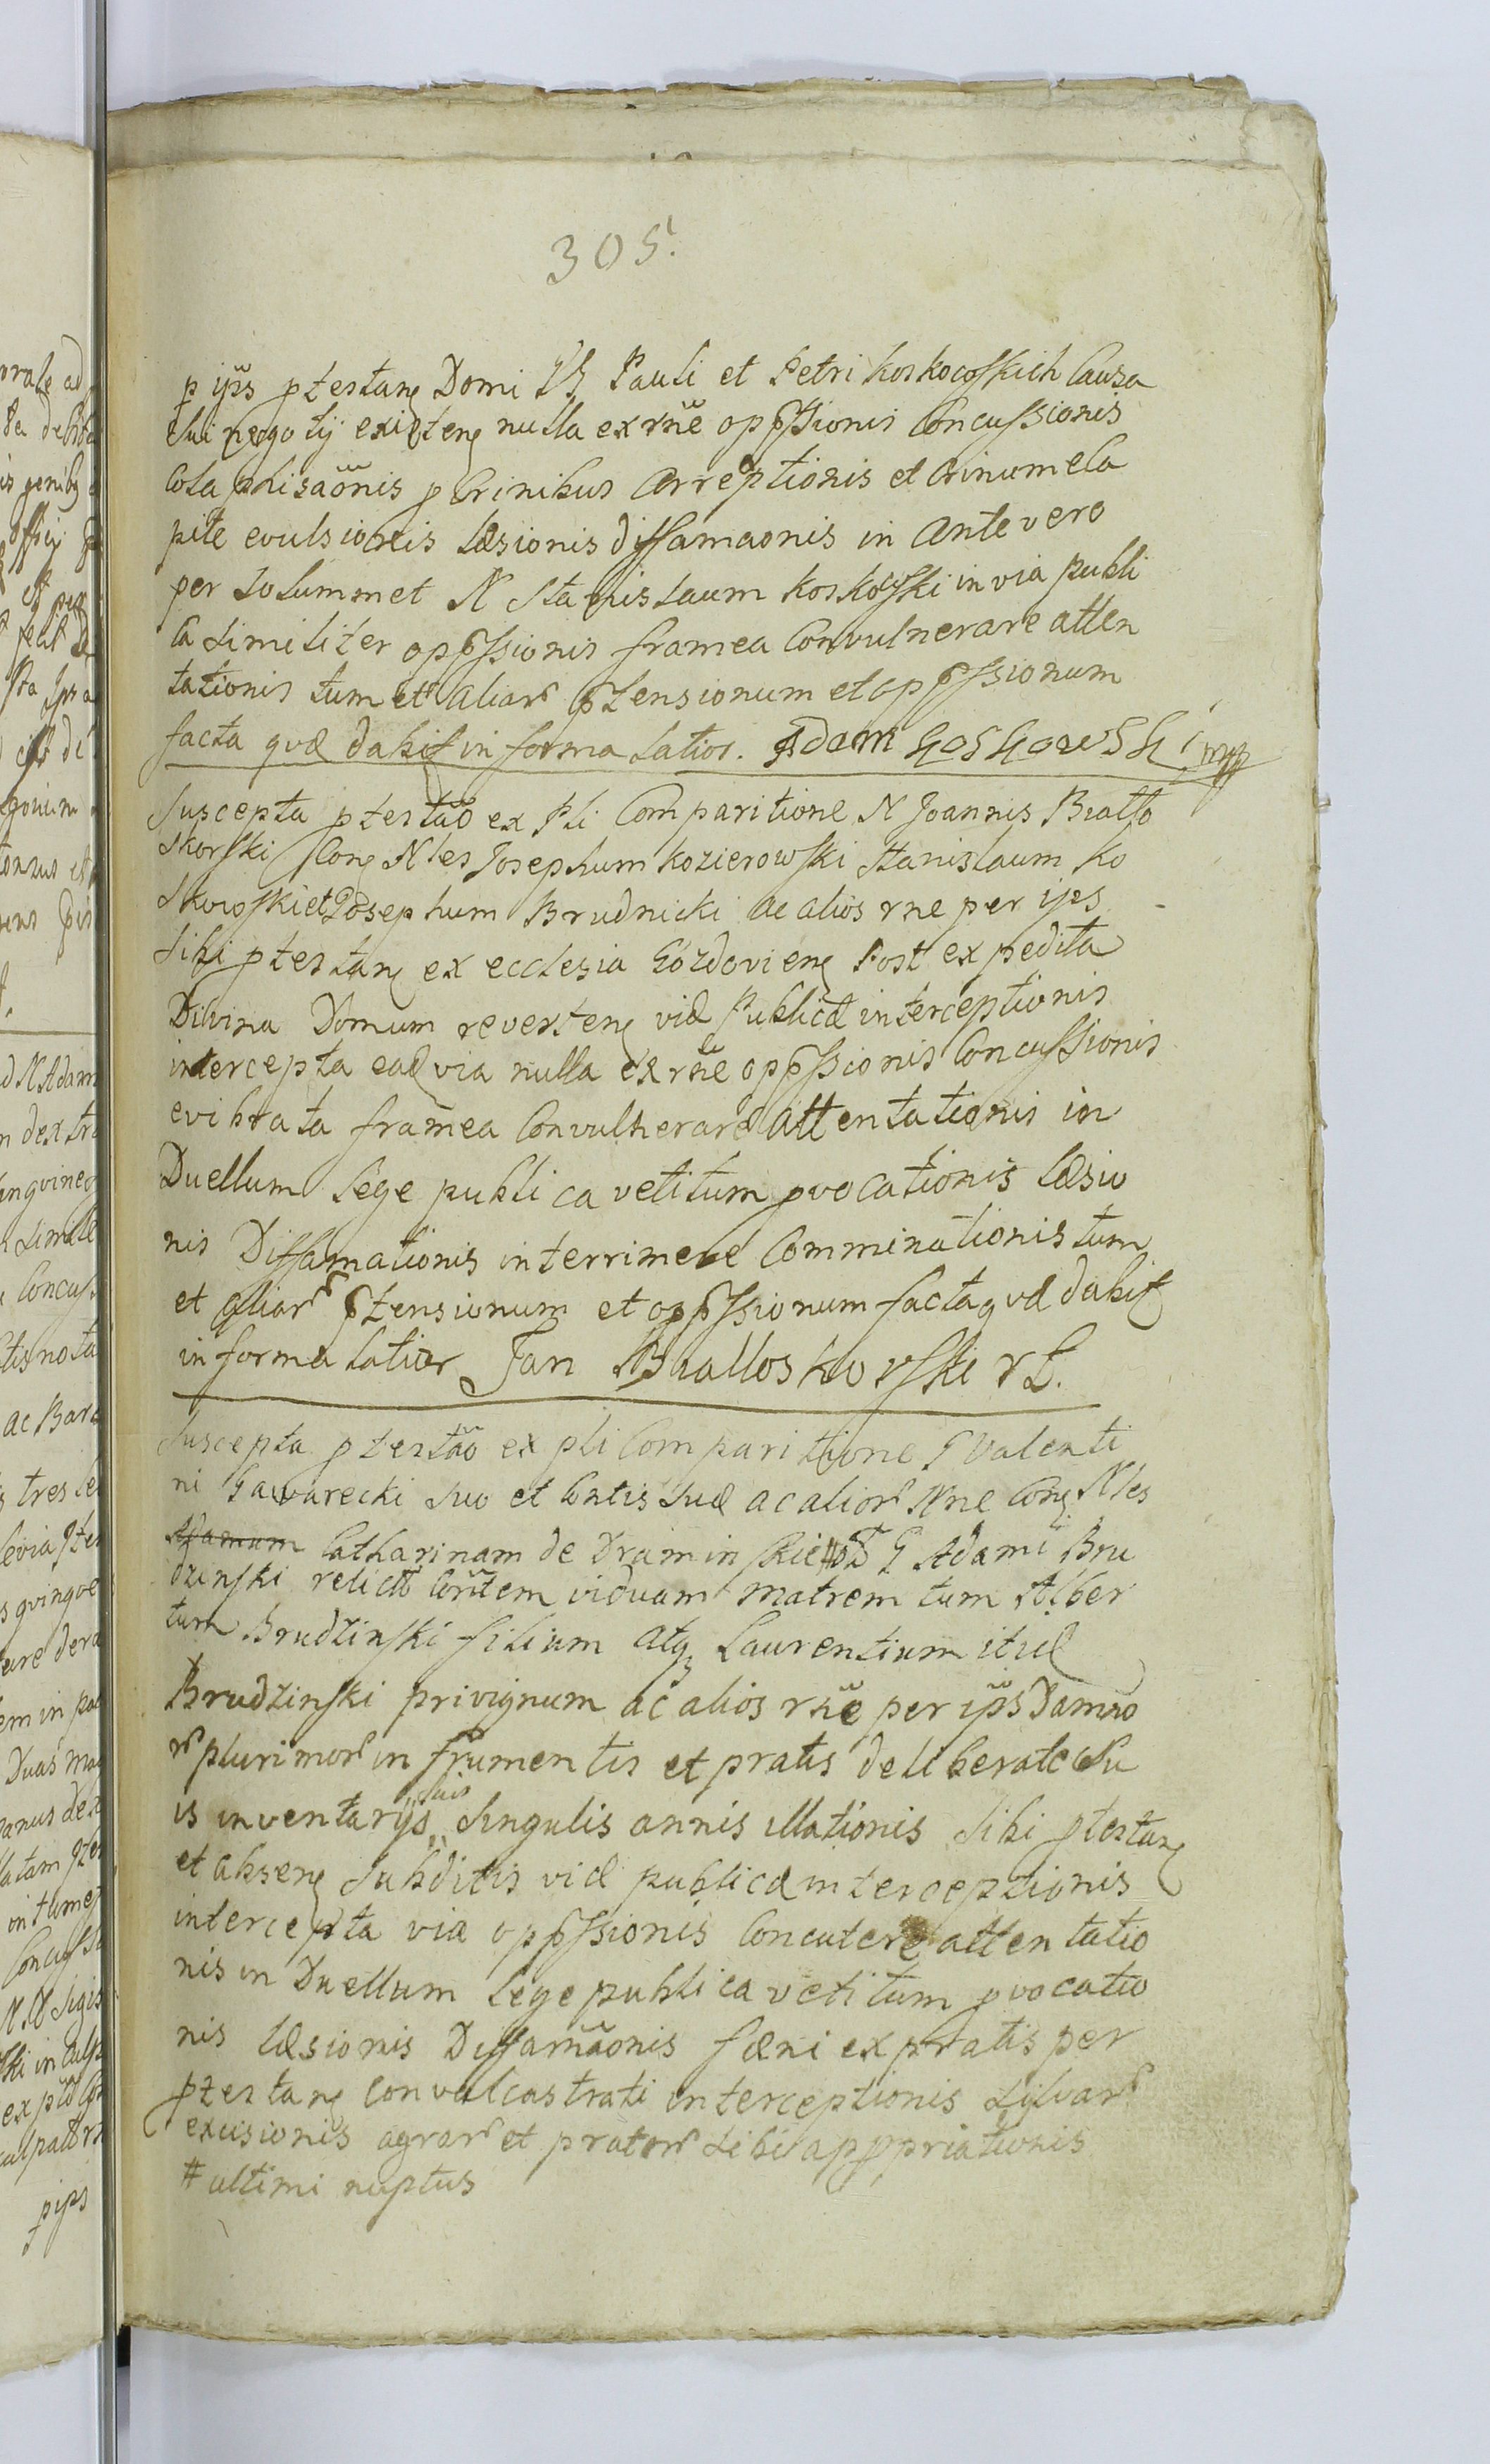 305.
p ips ptestang Domi Pauli et Petri Koskowskich Causa
sui negotij existeng nulla ex rne oppssionis Concussionis
Cola phisaonis p Crinibus arreptionis et Crinum e Ca
pite evulsionis Læsionis diffamaonis in ante vero
per solummet N Stanislaum Koskowski in via publi
ca similiter oppssionis framea Convulnerare atten
tationis tum et aliar ptensionum et oppssionum
facta qvæ dabit in forma latior. Adam Goskowski mpp
Suscepta ptestao ex pli Comparitione N Joannis Biallo
skorski Cong Nles Josephum Kozierowski Stanislaum Ko
skowski et Josephum Brudnicki ac alios rne per ips
sibi ptestang ex ecclesia Gozdovieng Post expedita
Divina Domum reverteng viæ Publicæ interceptionis
intercepta ead via nulla ex rne oppssionis Concussionis
evibrata framea Convulnerare attentationis in
Duellum Lege publica vetitum pvocationis Læsio
nis Diffamationis interrimere Comminationis tum
et aliar ptensionum et oppssionum facta qvæ dabit
in forma latior Jan Bialloskorski
Suscepta ptestao ex pli Comparitione G Valenti
ni Gawarecki suo et Contis suæ ac alior Nne Cong Nles
Catharinam de Draminskie # G Adami Bru
dzinski relict Contem viduam matrem tum Alber
tum Brudzinski filium atq Laurentium itid
Brudzinski privignum ac alios rne per ips Damno
r plurimor in frumentis et pratis deliberate su
is inventarys suis singulis annis illationis sibi ptestang
et abseng subditis viæ publicæ interceptionis
intercepta via oppssionis Concutere attentatio
nis in Duellum Lege publica vetitum pvocatio
nis Læsionis Diffamaonis fæni ex pratis per
ptestang convalcastrati interceptionis silvar
excisionis agror et prator sibi appropriationis
# ultimi nuptus